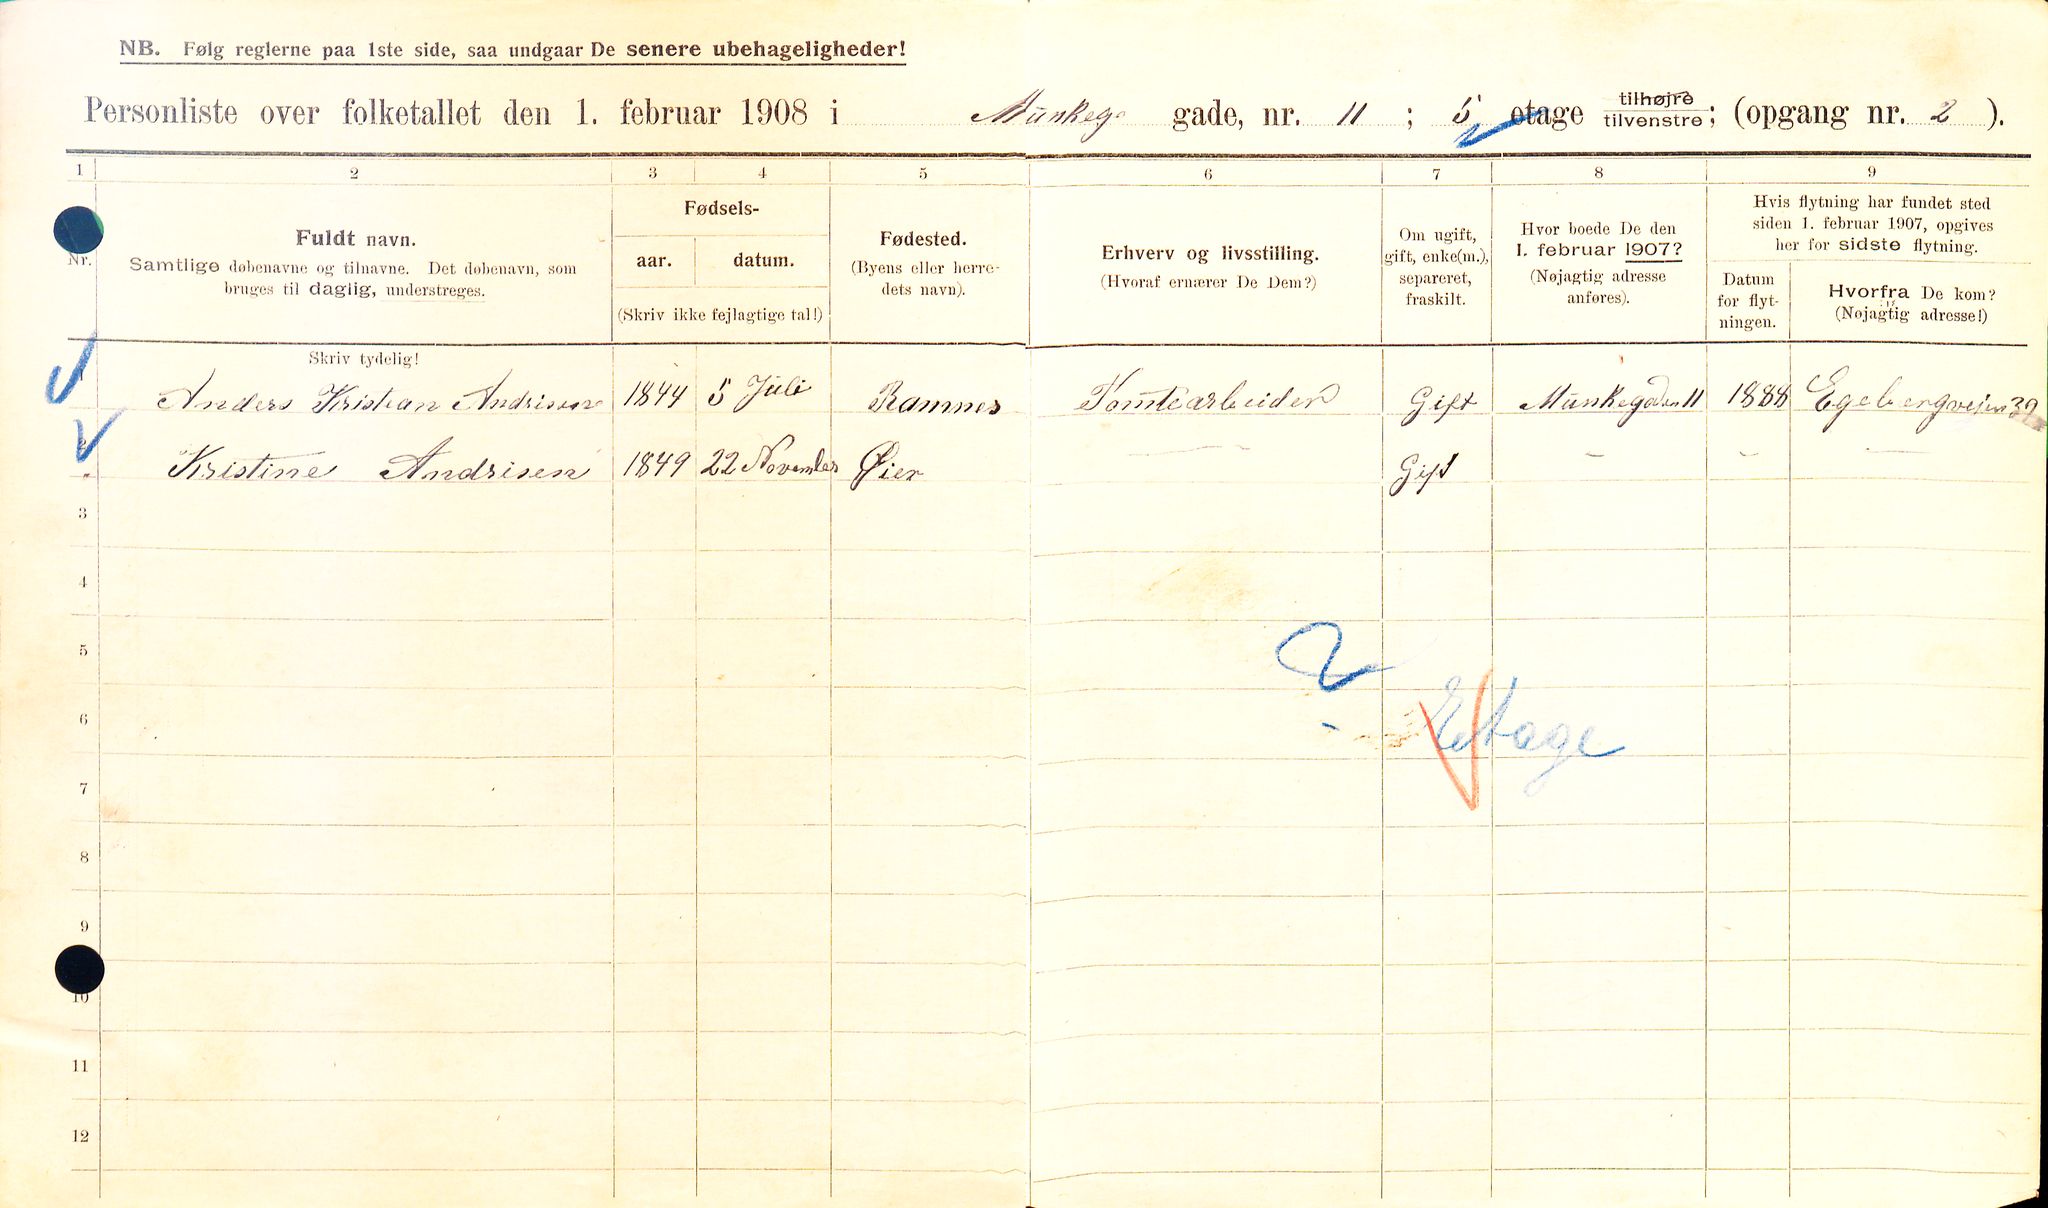 NB. Følg reglerne paa 1ste side, saa undgaar De senere ubehageligheder!
Personliste over folketallet den 1. februar 1908 i Munkega gade, nr. 11 ; 5 etage tilhøjre tilvenstre; (opgang nr. 2 ).
1 2 3 4 5 6 7 8 9
Nr.
Fuldt navn.
Samtlige døbenavne og tilnavne. Det døbenavn, som
bruges til daglig, understreges.
Skriv tydelig!
Fødsels-
aar. datum.
(Skriv ikke fejlagtige tal!)
Fødested.
(Byens eller herre-
dets navn).
Erhverv og livsstilling.
(Hvoraf ernærer De Dem?)
Om ugift,
gift, enke(m.),
separeret,
fraskilt.
Hvor boede De den
1. februar 1907?
(Nøjagtig adresse
anføres).
Hvis flytning har fundet sted
siden 1. februar 1907, opgives
her for sidste flytning.
Datum
for flyt-
ningen.
Hvorfra De kom?
(Nøjagtig adresse!)
1 Anders Kristian Andrisen 1844 5 Juli Ramnes Tomtearbeider Gift Munkegaden 11 1888 Egebergvejen 32
2 Kristine Andrisen 1849 22 November Øier — Gift - - —
3
4
5
2 Etage
6
7
8
9
10
11
12